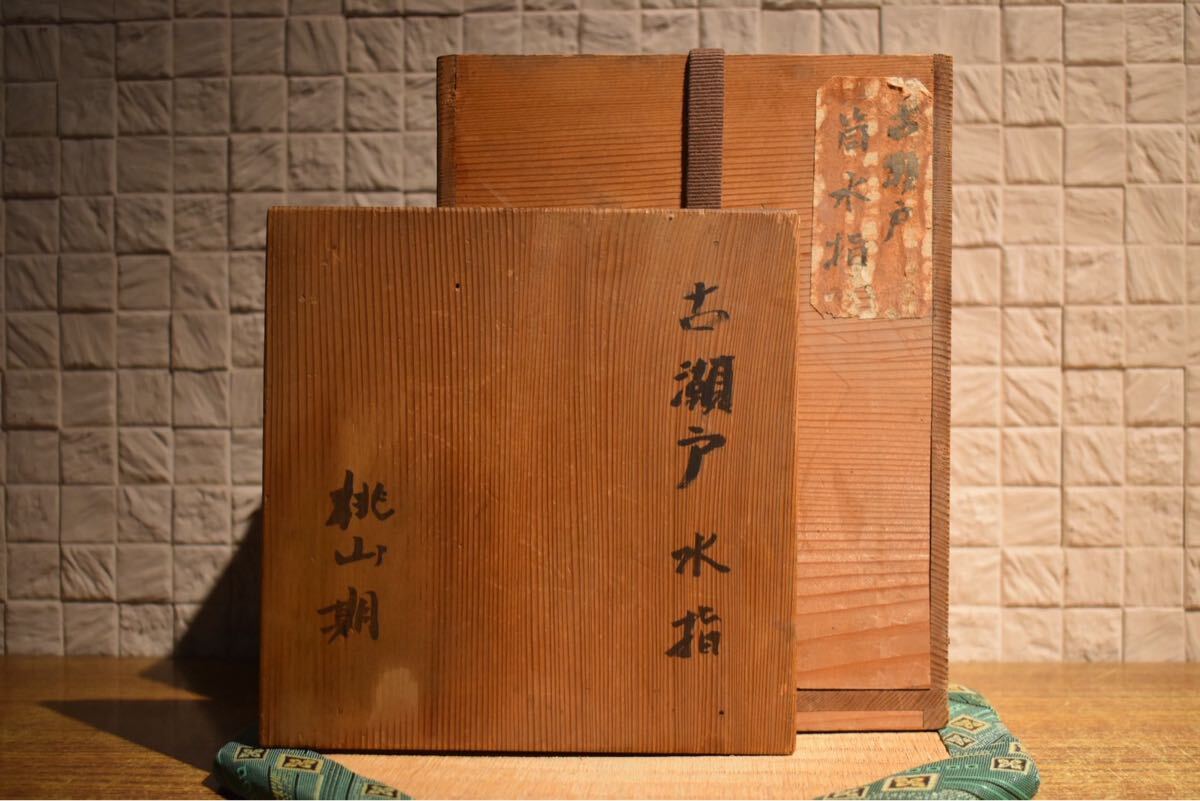 古瀬戸水指
桃山期
古瀬戸
筒水指